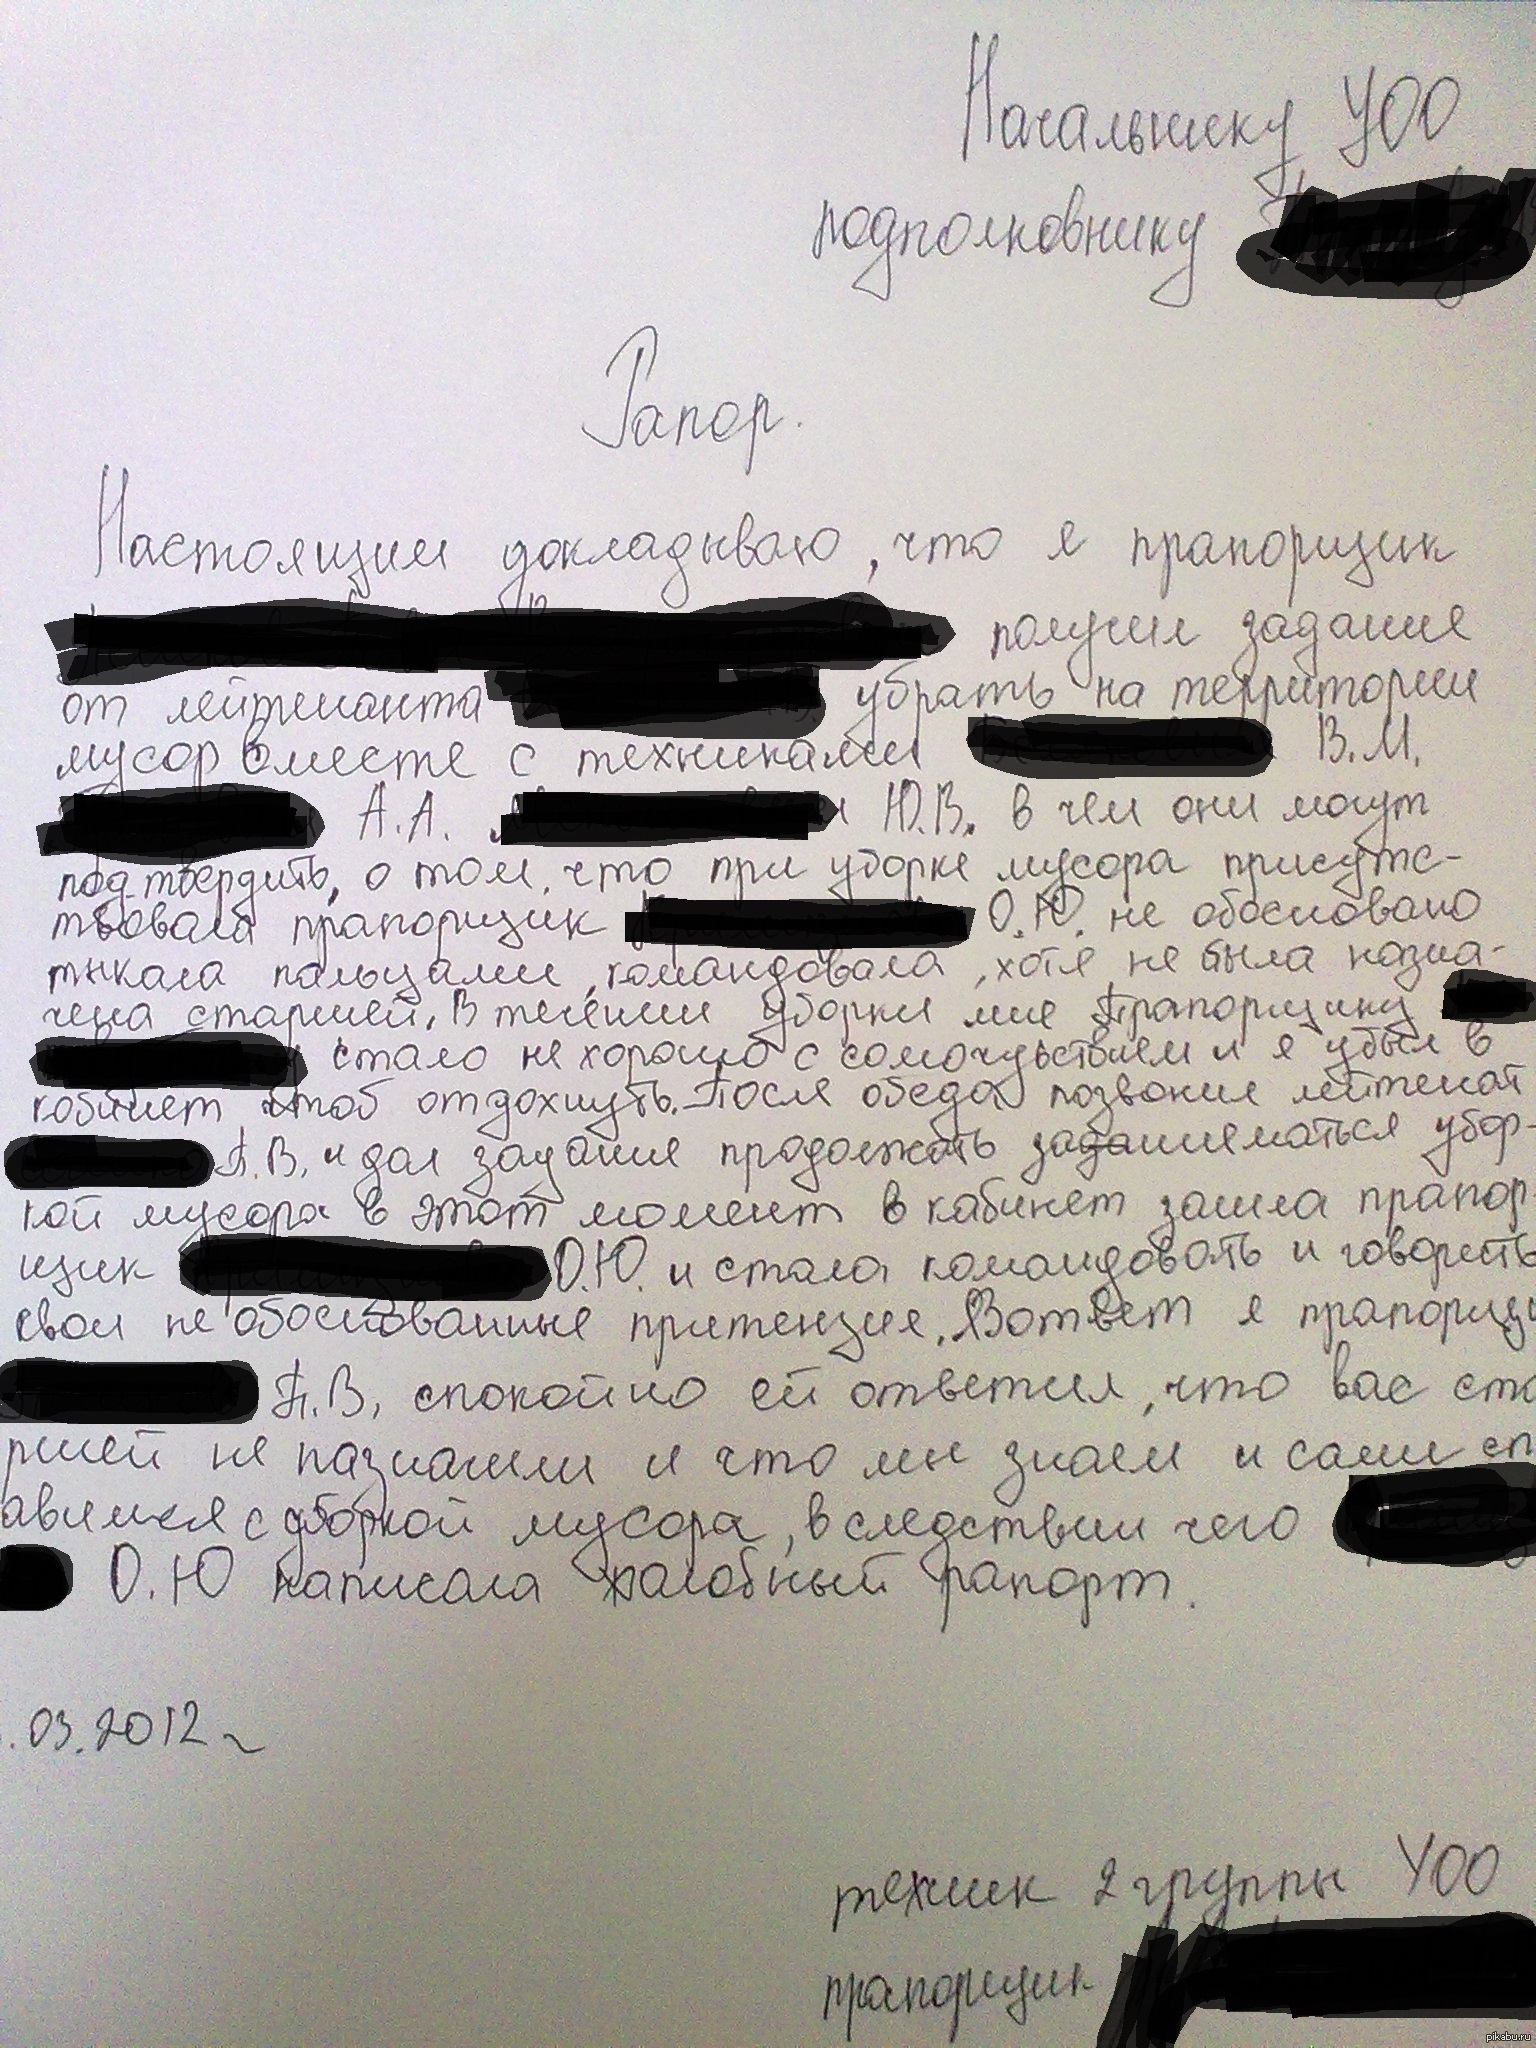 Начальнику УОО
подполковнику
Рапор.
Настоящим докладываю, что я прапорщик
получил задание
от лейтенанта убрать на территории
мусор вместе с техниками В.М.
А.А. Ю.В. в чем они могут
подтвердить, о том, что при уборке мусора присутс-
твовала прапорщик О.Ю. не обосновано
тыкала пальцами, командовала, хотя не была назна-
чена старшей. В течении уборки мне прапорщику
стало не хорошо с сомочувствием и я убыл в
кобинет чтоб отдохнуть. После обеда позвонил лейтенат
П.В. и дал задание продолжать заданиематься убор-
кой мусора в этот момент в кабинет зашла прапор-
щик О.Ю. и стала командовать и говорить
свои не обоснованные притензие. В ответ я прапорщи
П.В, спокойно ей ответил, что вас ста
ршей не назначили и что мы знаем и сами сп
авимся с уборкой мусора, в следствии чего
О.Ю написала жалобный рапорт.
.03.2012г
техник 2 группы УОО
прапорщик
pikabu.ru